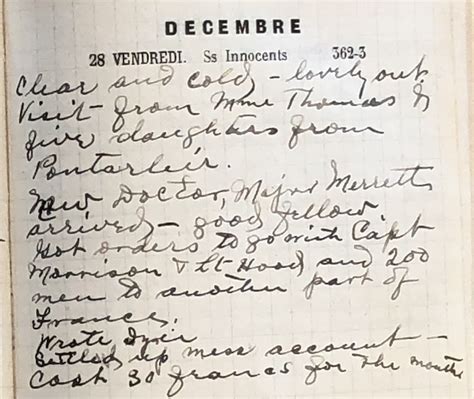 DECEMBRE
28 VENDREDI. Ss Innocents 362-3
Clear and cold – lovely out
Visit from Mme Thomas &
five daughters from
Pontarleir.
New Doctor, Major Merrett
arrived – good fellow
Got orders to go with Capt
Morrison & Lt Hood and 200
men to another part of
France.
Wrote
Settled up mess account –
Cost 30 francs for the month